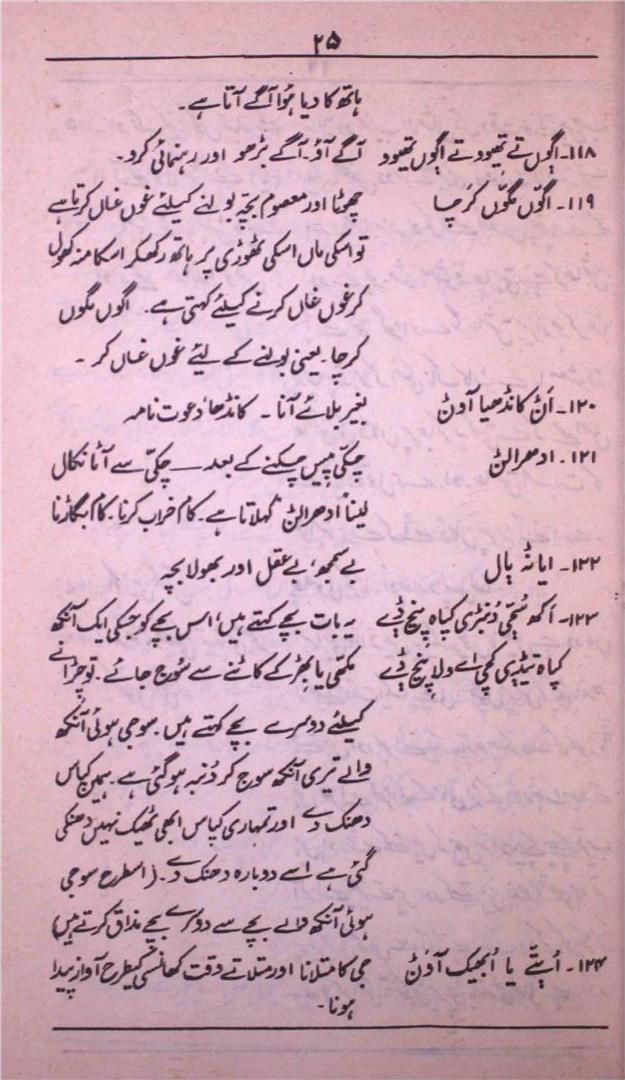 ۲۵
ہاتھ کا دیا ہُوا آگے آتا ہے۔
۱۱۸۔ اگوں تے تھیوو تے اگوں تھیوو آگے آؤ۔ آگے بڑھو اور رہنمائی کرو۔
۱۱۹۔ اگوّں مگوّں کرَ چا چھوٹا اور معصوم بچّہ بولنے کیلئے غوں غاں کرتا ہے
تو اسکی ماں اسکی ٹھوڑی پر ہاتھ رکھکر اسکا منہ کھول
کر غوں غاں کرنے کیلئے کہتی ہے۔ اگوں مگوں
کر چا۔ یعنی بولنے کے لئے غوں غاں کر۔
۱۲۰۔ اَنْ کانڈھیا آونْ بغیر بلائے آنا۔ کانڈھا، دعوت نامہ
۱۲۱۔ ادھرالن چکّی پیس چکنے کے بعد ــ چکّی سے آٹا نکال
لینا "ادھرالن" کہلاتا ہے۔ کام خراب کرنا۔ کام بگاڑنا
۱۲۲۔ ایانہ بال بے سمجھ، بے عقل اور بھولا بچہ
۱۲۳۔ اکھ سُجّی دُنبڑی کپاہ پنج ڈے یہ بات بچے کہتے ہیں، اس بچے کو جسکی ایک آنکھ
کپاہ تیڈی کچی اے ولا پنج ڈے مکھی یا بھڑ کے کاٹنے سے سُوج جائے۔ تو چڑانے
کیلئے دوسرے بچے کہتے ہیں۔ سوجی ہوئی آنکھ
والے تری آنکھ سوج کر دُنبہ ہو گئی ہے۔ ہمیں کپاس
دھنک دے اور تمہاری کپاس ابھی ٹھیک نہیں دھنکی
گئی ہے اسے دوبارہ دھنک دے۔ (اسطرح سوجی
ہوئی آنکھ والے بچے سے دوسرے بچے مذاق کرتے ہیں)
۱۲۴۔ اُبتّے یا اُبھیک آونْ جی کا متلانا اور متلاتے وقت کھانسی کیطرح آواز پیدا
ہونا۔